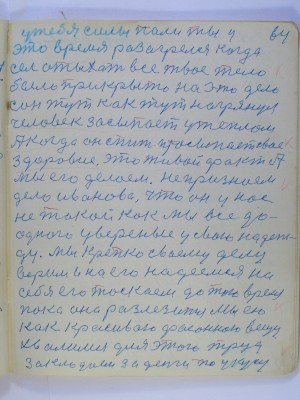 у тебя силы пали ты и
это время разагрелся когда
сел отыхать все твое тело
было прикрыто на это дело
сон тут как тут нагрянул
человек засыпает у теплом
А когда он спит просыпает свое
здоровие. это живой факт А
мы его делаем. непризнаем
дело иванова, что он у нас
не такой как мы все до-
одного увереные у свою надеж-
ду. мы крепко своему делу
верим и на его надеемся на
себя его тоскаем до того время
пока она разлезится мы ею
как красивою фасонною вещу
хвалимся для этого труд
закладаем за деньги по укуку